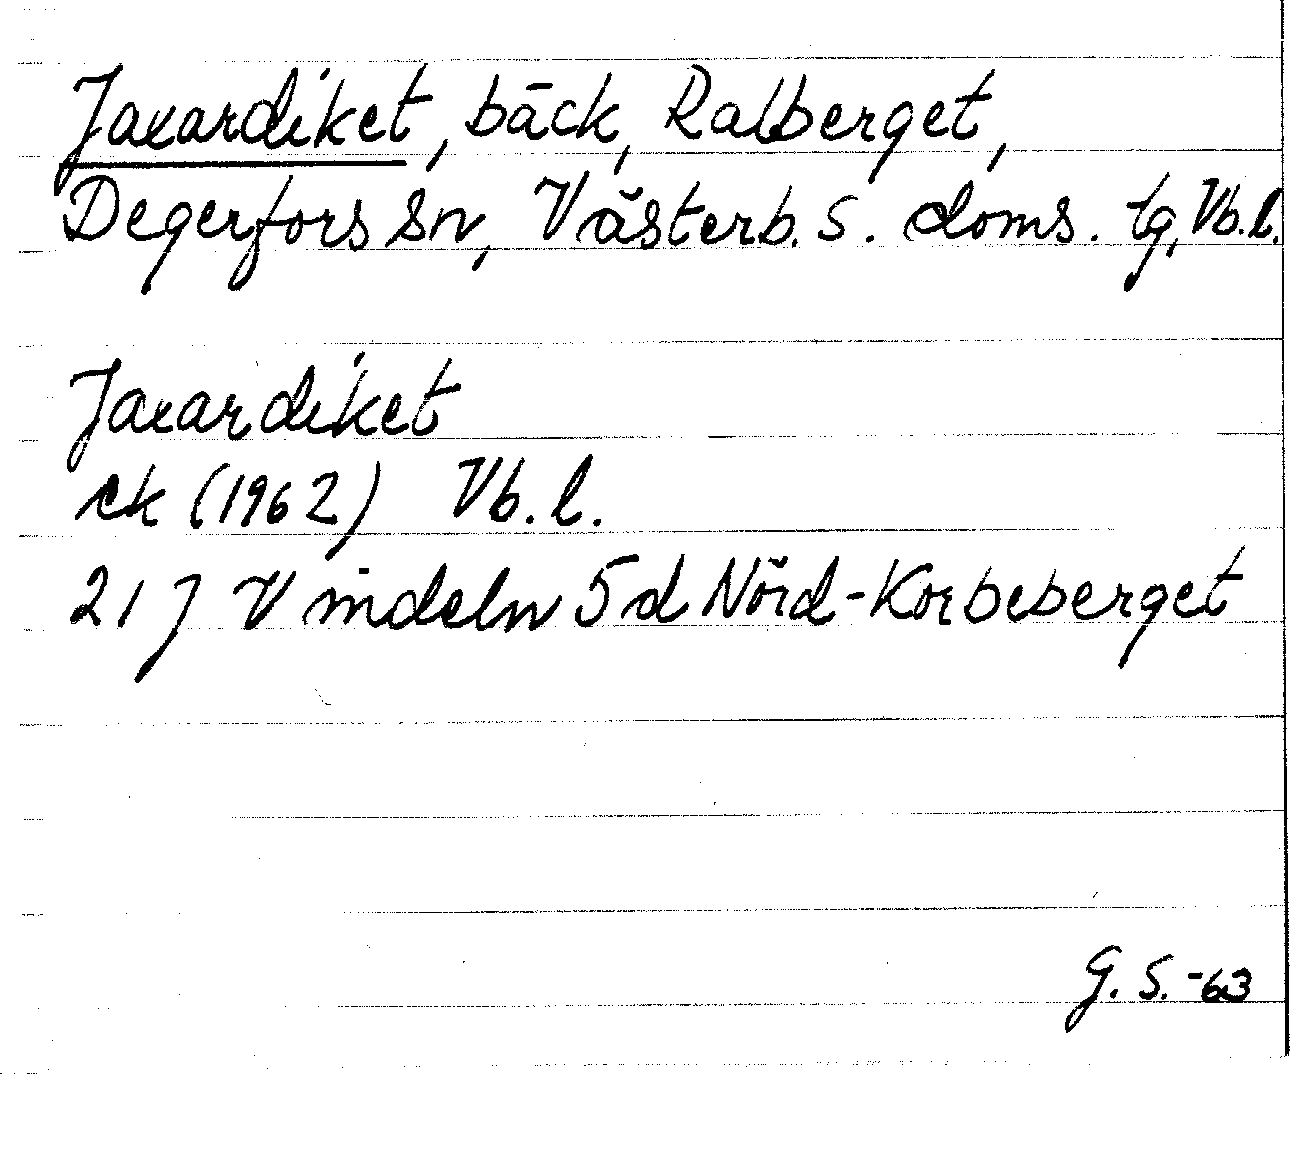 Jaxardiket, bäck, Ralberget,
Degerfors sn, Västerb. s. doms. tg, Vb.l.
Jaxardiket
ek (1962) Vb. l.
21 J Vindeln 5d Nörd-Korbeberget
G. S. -63